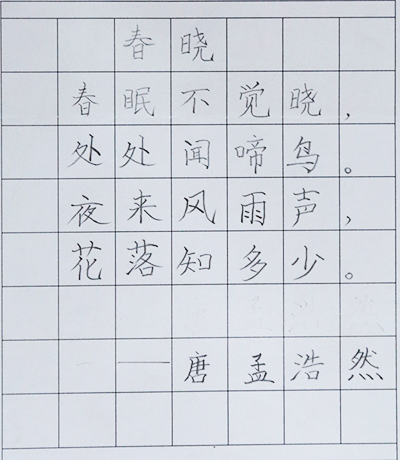 春晓
春眠不觉晓，
处处闻啼鸟。
夜来风雨声，
花落知多少。
——唐 孟浩然